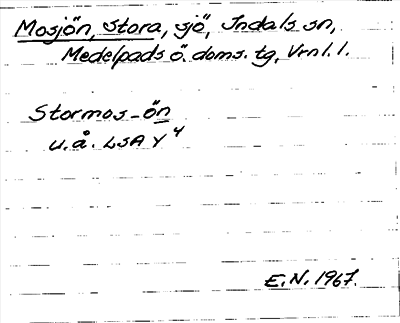 Mosjön, Stora, sjö, Indals sn,
Medelpads ö. doms. tg, Vrnl. l.
Stormos-ön
u.å. LSA Y 4
E.N. 1967.